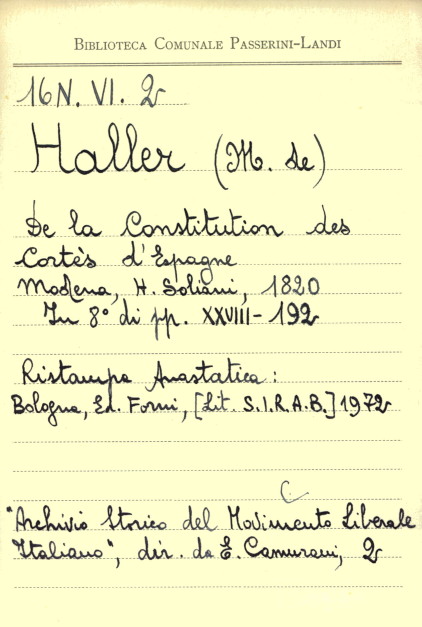 BIBLIOTECA COMUNALE PASSERINI-LANDI
16 N. VI. 2
Haller (M. de)
De la Constitution des
Cortès d'Espagne
Modena, H. Soliani, 1820
In 8° di pp. XXVIII-192
Ristampa Anastatica:
Bologna, Ed. Forni, [Lit. S.I.R.A.B.] 1972
C
"Archivio Storico del Movimento Liberale
Italiano", dir. da E. Camurani, 2